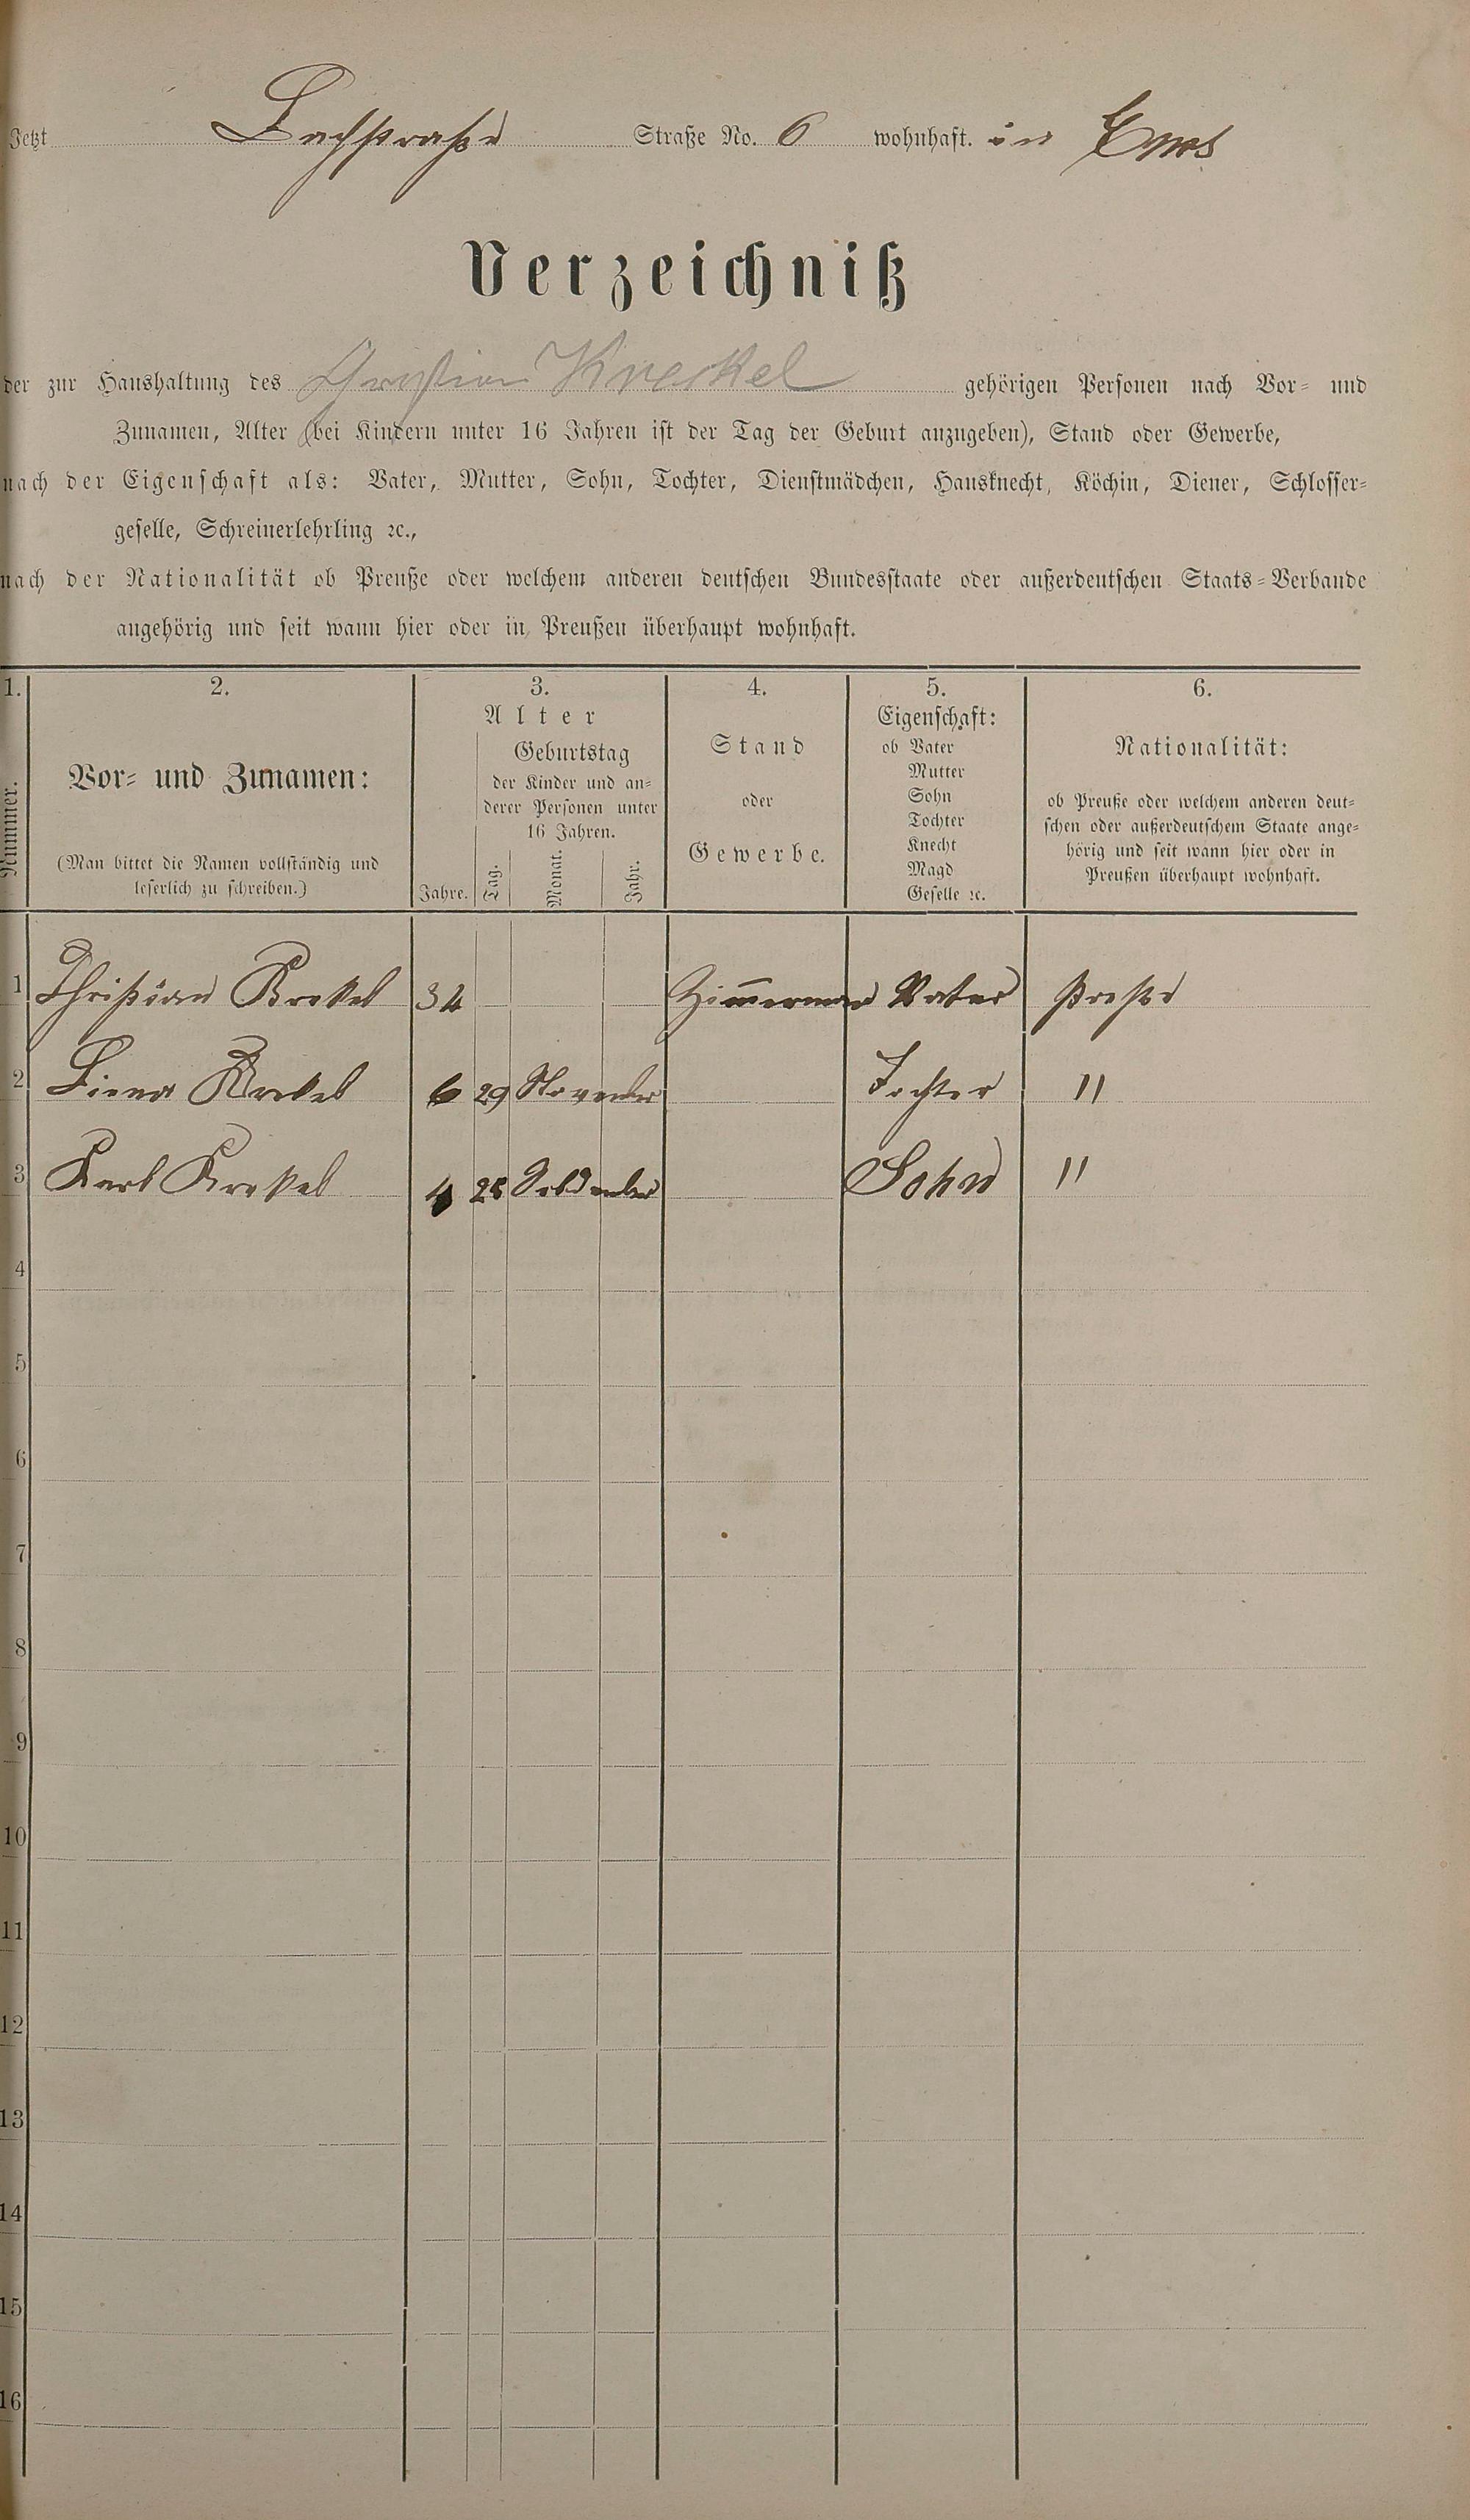 Jetzt Bachstraße Straße No. 6 wohnhaft. in Ems
Verzeichniß
der zur Haushaltung des Christian Kreckel gehörigen Personen nach Vor- und
Zunamen, Alter (bei Kindern unter 16 Jahren ist der Tag der Geburt anzugeben), Stand oder Gewerbe,
nach der Eigenschaft als: Vater, Mutter, Sohn, Tochter, Dienstmädchen, Hausknecht, Köchin, Diener, Schlosser-
geselle, Schreinerlehrling ꝛc.,
nach der Nationalität ob Preuße oder welchem anderen deutschen Bundesstaate oder außerdeutschen Staats-Verbande
angehörig und seit wann hier oder in Preußen überhaupt wohnhaft.
1. 2. 3. 4. 5. 6.
Nummer.
Vor- und Zunamen:
(Man bittet die Namen vollständig und
leserlich zu schreiben.)
Alter
Jahre.
Geburtstag
der Kinder und an-
derer Personen unter
16 Jahren.
Tag. Monat. Jahr.
Stand
oder
Gewerbe.
Eigenschaft:
ob Vater
Mutter
Sohn
Tochter
Knecht
Magd
Geselle ꝛc.
Nationalität:
ob Preuße oder welchem anderen deut-
schen oder außerdeutschem Staate ange-
hörig und seit wann hier oder in
Preußen überhaupt wohnhaft.
1 Christian Krekel 34 Zim̅erman Vater Preße
2 Liena Krekel 6 29 November Tochter "
3 Karl Krekel 4 28 Sohn "
4
5
6
7
8
9
10
11
12
13
14
15
16